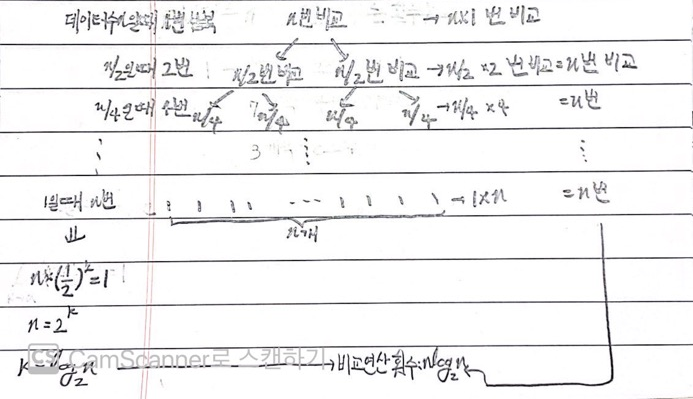 데이터수n일때 1번 반복 n번 비교 → n×1 번 비교
n/2일때 2번 n/2번 비교 n/2번 비교 → n/2 ×2 번 비교=n번 비교
n/4일때 4번 n/4 n/4 n/4 n/4 → n/4 ×4 =n번
1일때 n번 1 1 1 1 --- 1 1 1 1 1 → 1×n =n번
⇓ n개
n×(1/2)^k=1
n=2^k
CS CamScanner로 스캔하기
k=log₂n → 비교연산 횟수:nlog₂n